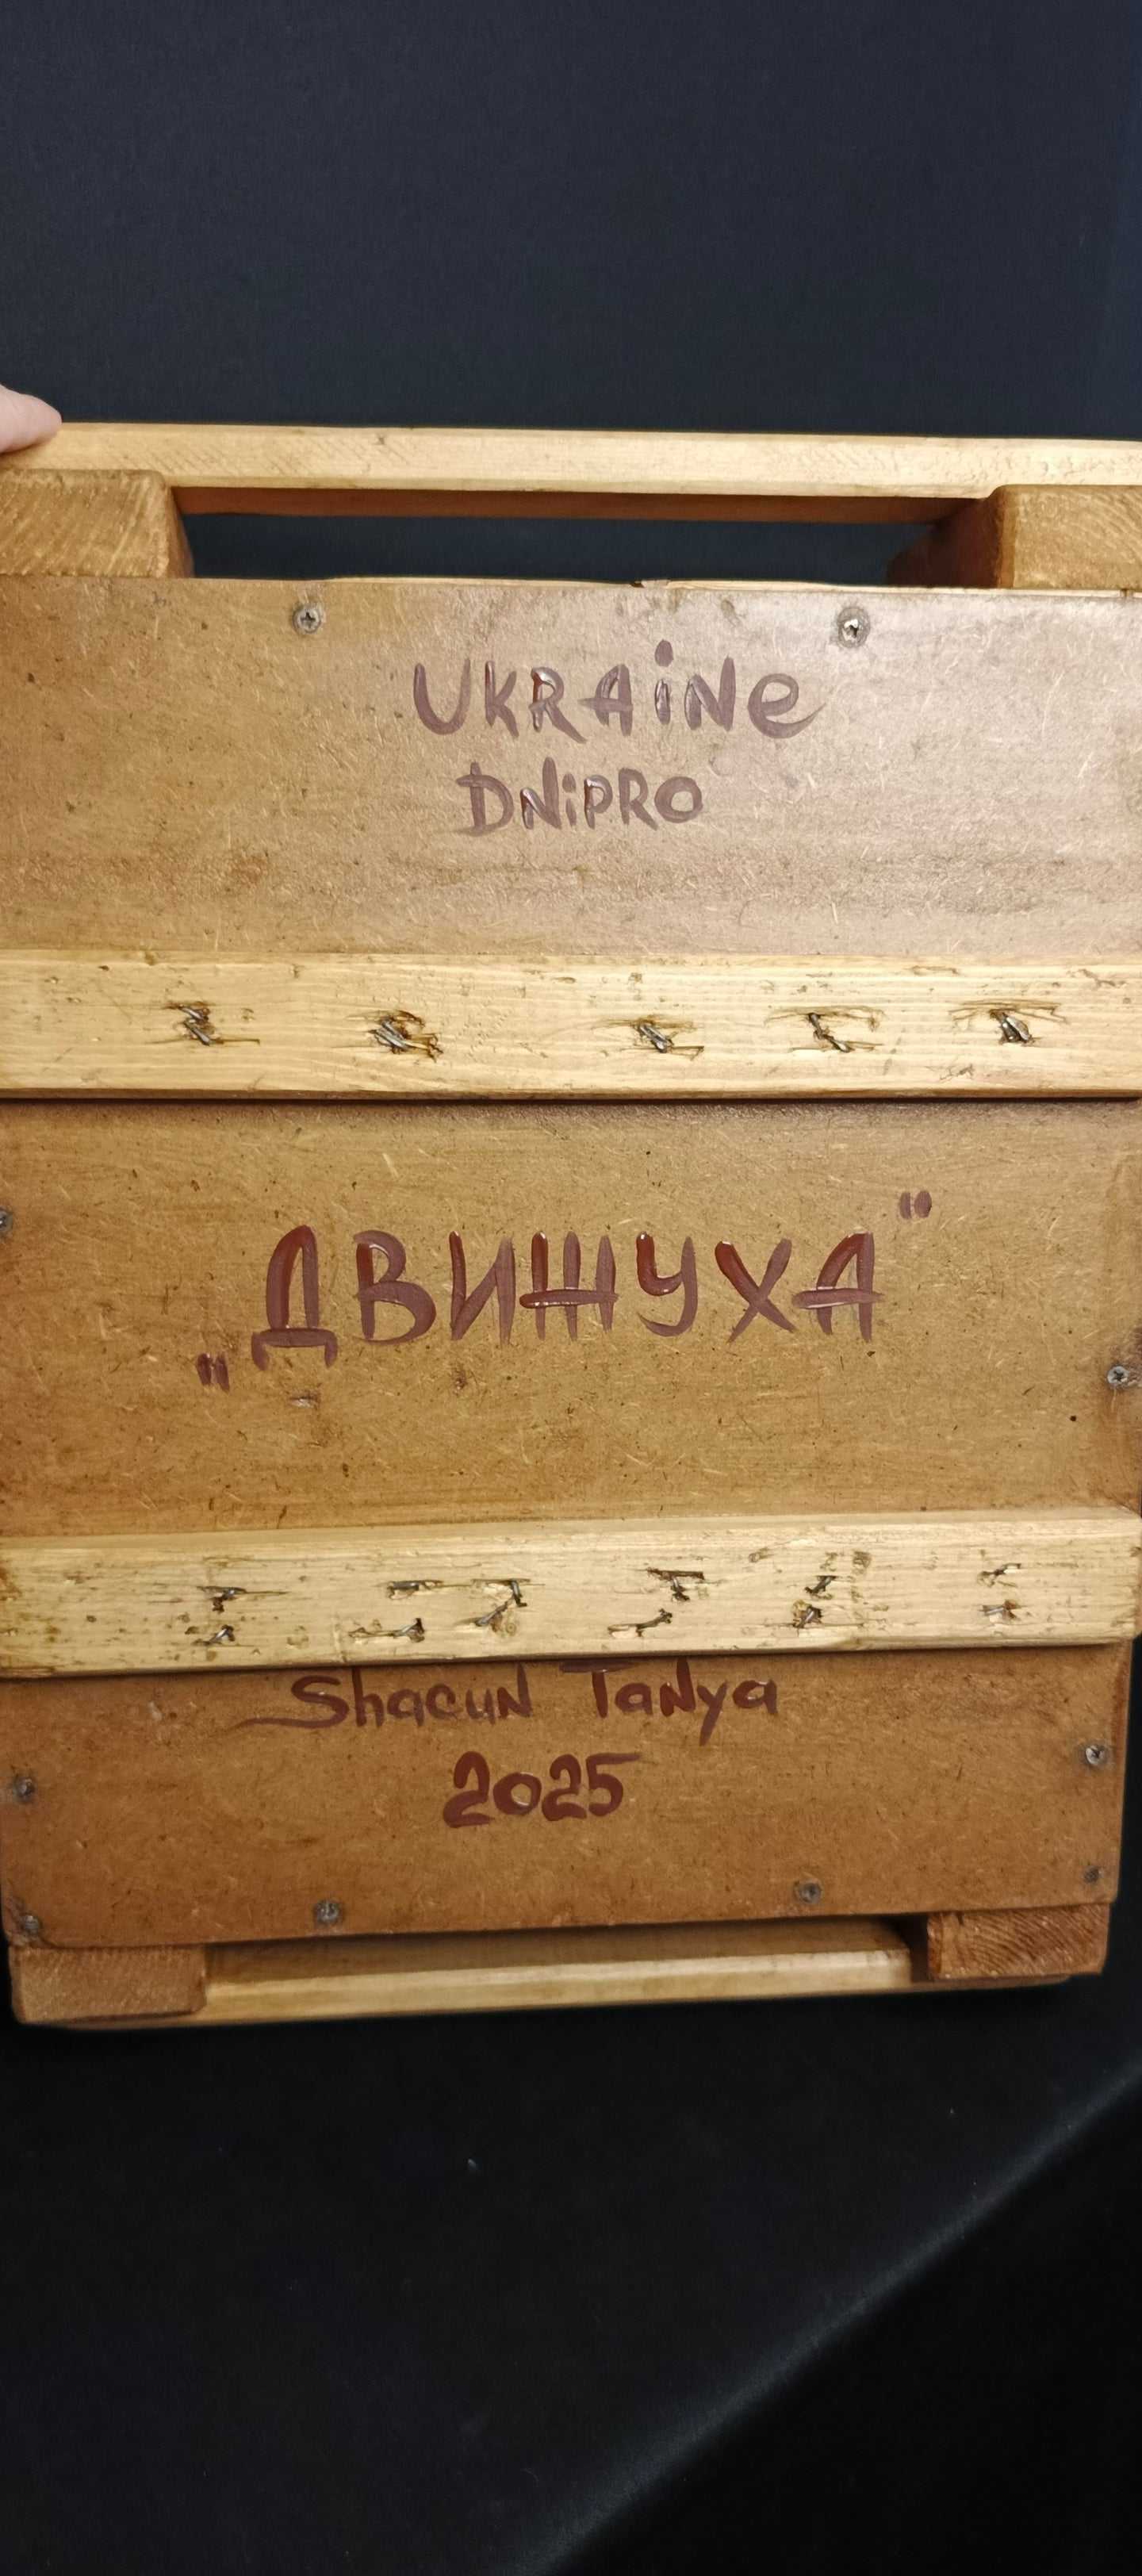 UKRAiNe
DNiPRO
„ДВИЖУХА"
Shacun Tanya
2025